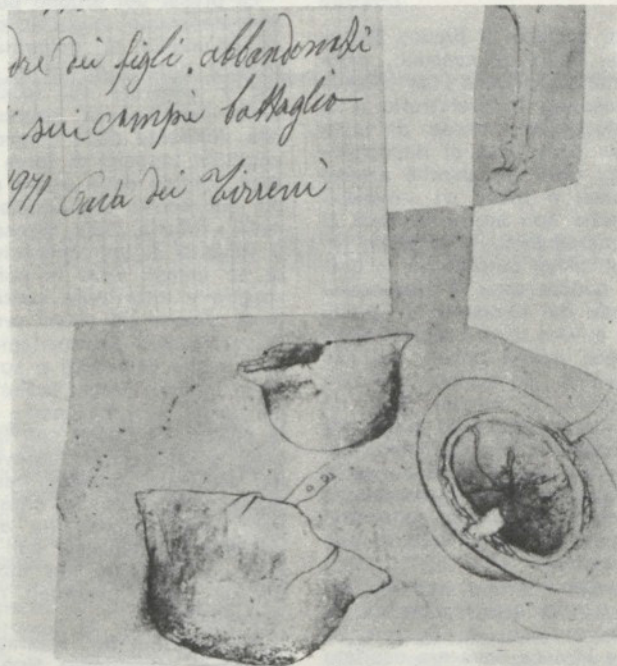 dre dei figli, abbandonati
sui campi battaglia
1971 Cava dei Tirreni